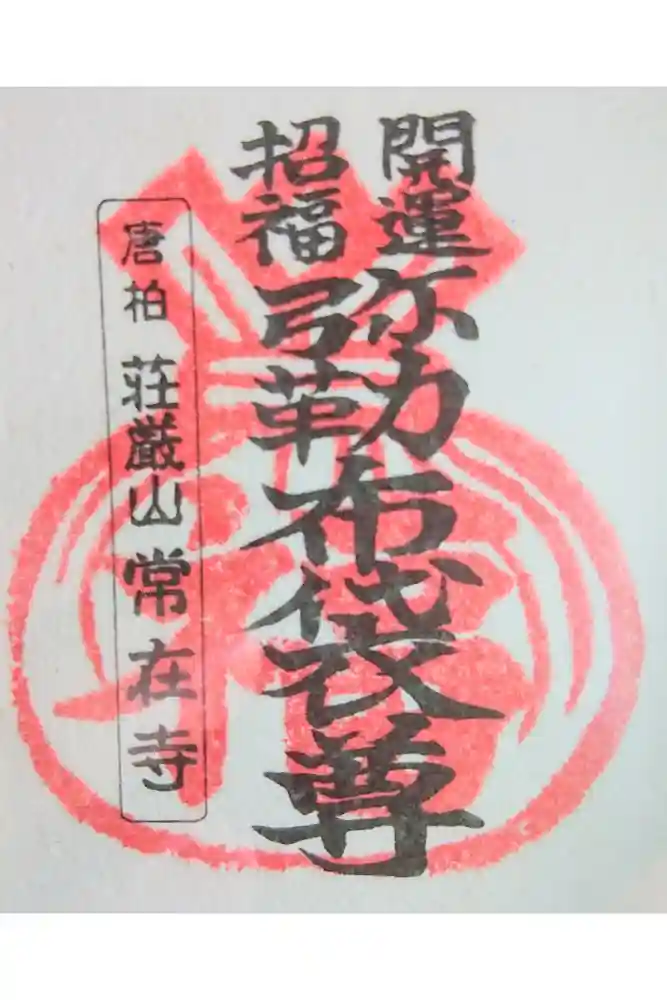 開運
招福
弥勒布袋尊
唐柏 荘厳山 常在寺